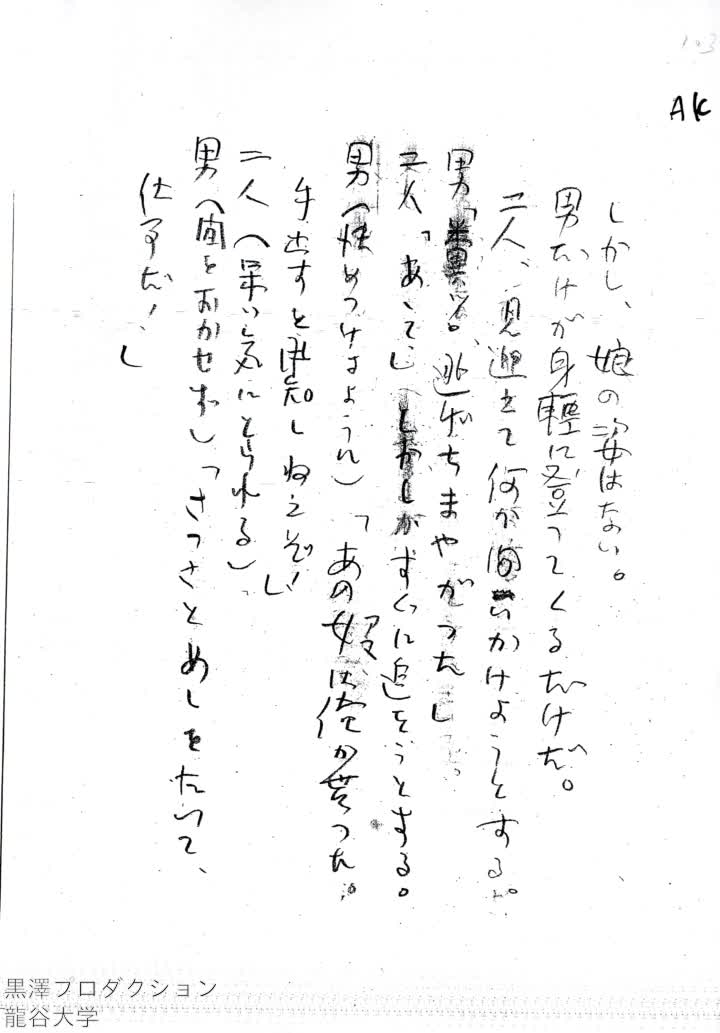 103
AK
しかし、娘の姿はない。
男だけが身軽に登ってくるだけだ。
二人、見迎えて何か問いかけようとする。
男「逃げちまやがった」
二人「あゝて」すぐに追をうとする。
男(決めつけるように)「あの娘は俺が貰った。
手出すと承知しねえぞ!」
二人(呆い気にとられる)
男(間をおかせず)「さっさとめしをたいて、
仕事だ!」
黒澤プロダクション
龍谷大学